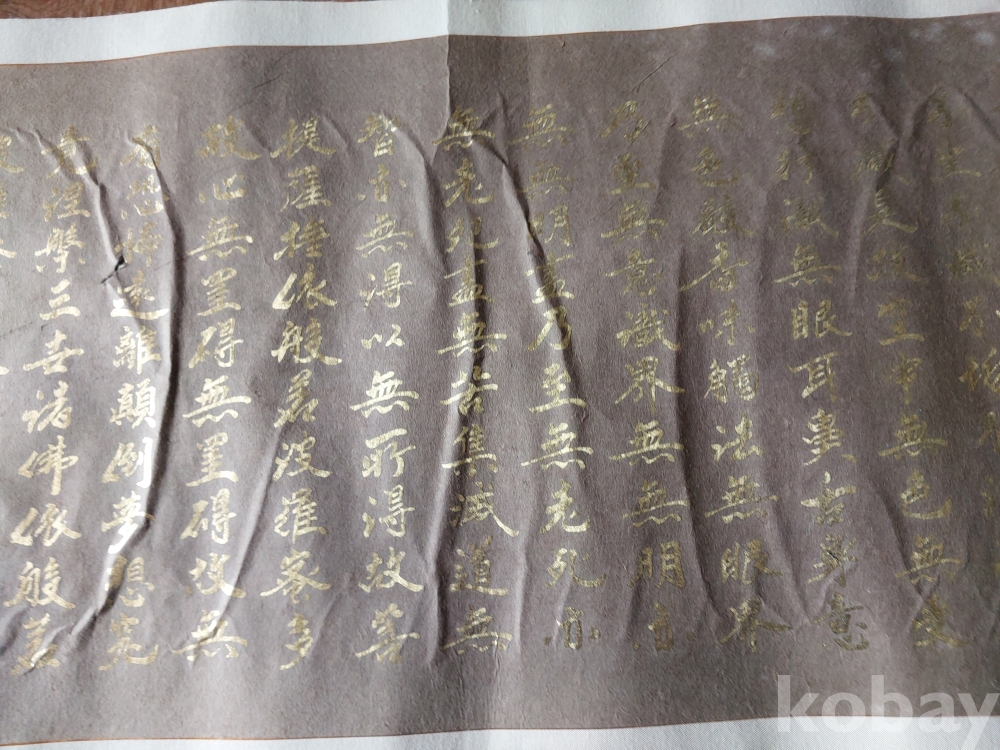 生不滅不垢不
不減是故空中無色無受
想行識無眼耳鼻舌身意
無色聲香味觸法無眼界
乃至無意識界無無明亦
無無明盡乃至無老死亦
無老死盡無苦集滅道無
智亦無得以無所得故菩
提薩埵依般若波羅蜜多
故心無罣碍無罣碍故無
有恐怖遠離顛倒夢想究
竟涅槃三世諸佛依般若
kobay